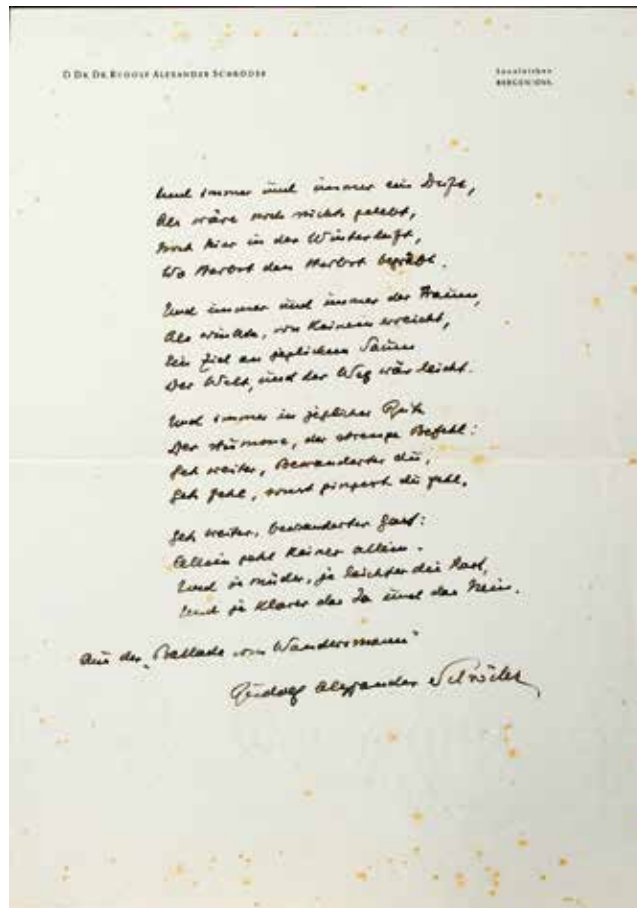 D DR. DR. RUDOLF ALEXANDER SCHRÖDER
Sonnleithen
BERGEN/OBB.
Und immer und immer ein Duft,
Als wäre noch nichts gelebt,
Noch hier in der Winterluft,
Wo Herbst den Herbst begräbt.
Und immer und immer der Traum,
Als winkte, von Keinem erreicht,
Ein Ziel am jeglichem Saum
Der Welt, und der Weg wär leicht.
Und immer in jeglicher Ruh
Der stumme, der strenge Befehl:
Geh weiter, Bewanderter du,
Geh fehl, sonst gingest du fehl.
Geh weiter, bewanderter Gast:
Allein geht Keiner allein.
Und je müder, je leichter die Rast,
Und je klarer das Ja und das Nein.
Aus der „Ballade vom Wandersmann"
Rudolf Alexander Schröder